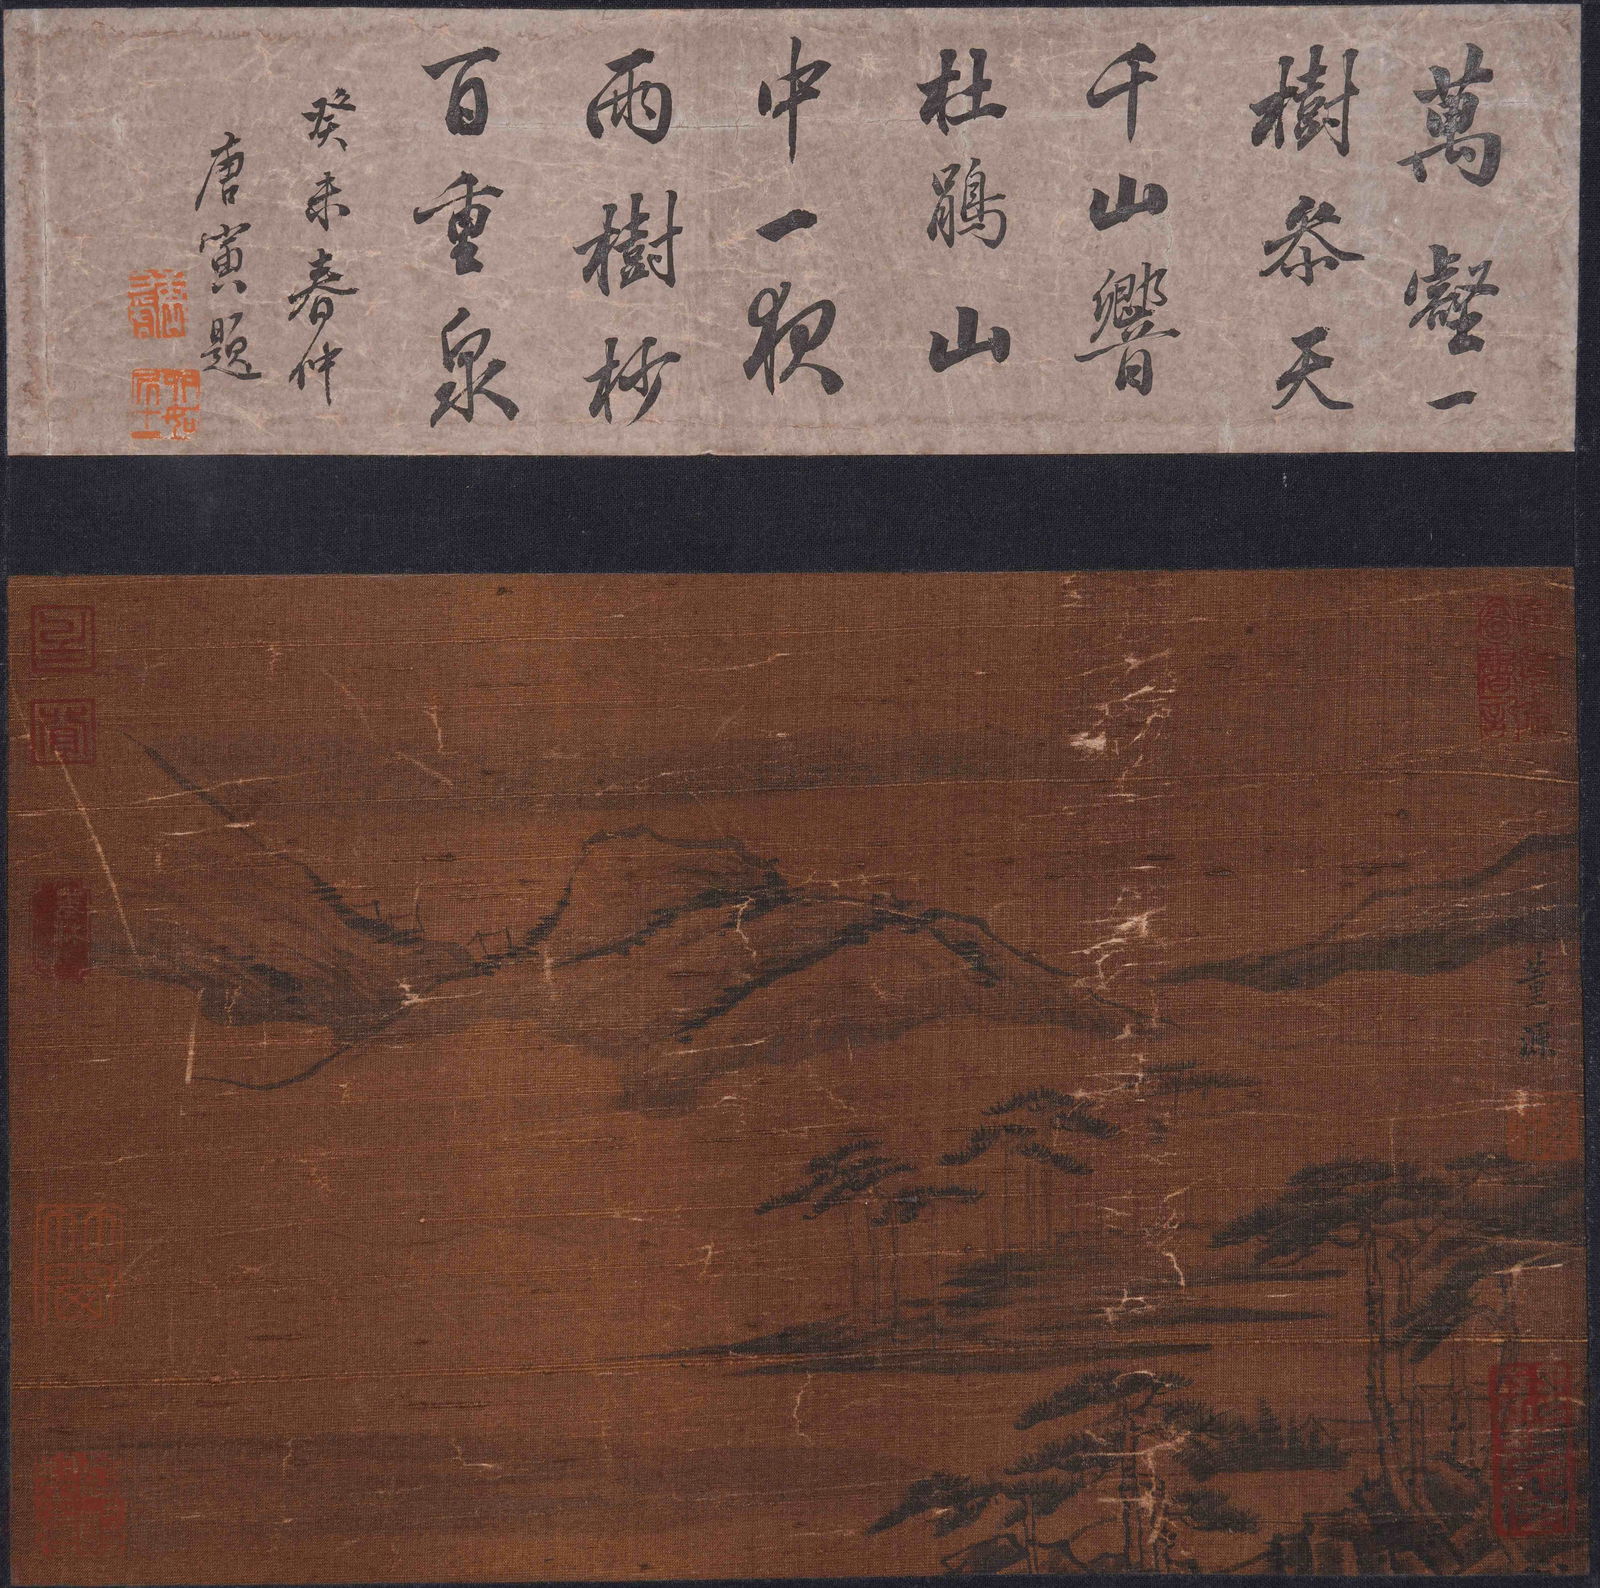 萬壑一
樹參天
千山響
杜鵑山
中一夜
雨樹杪
百重泉
癸未春仲
唐寅題
董源